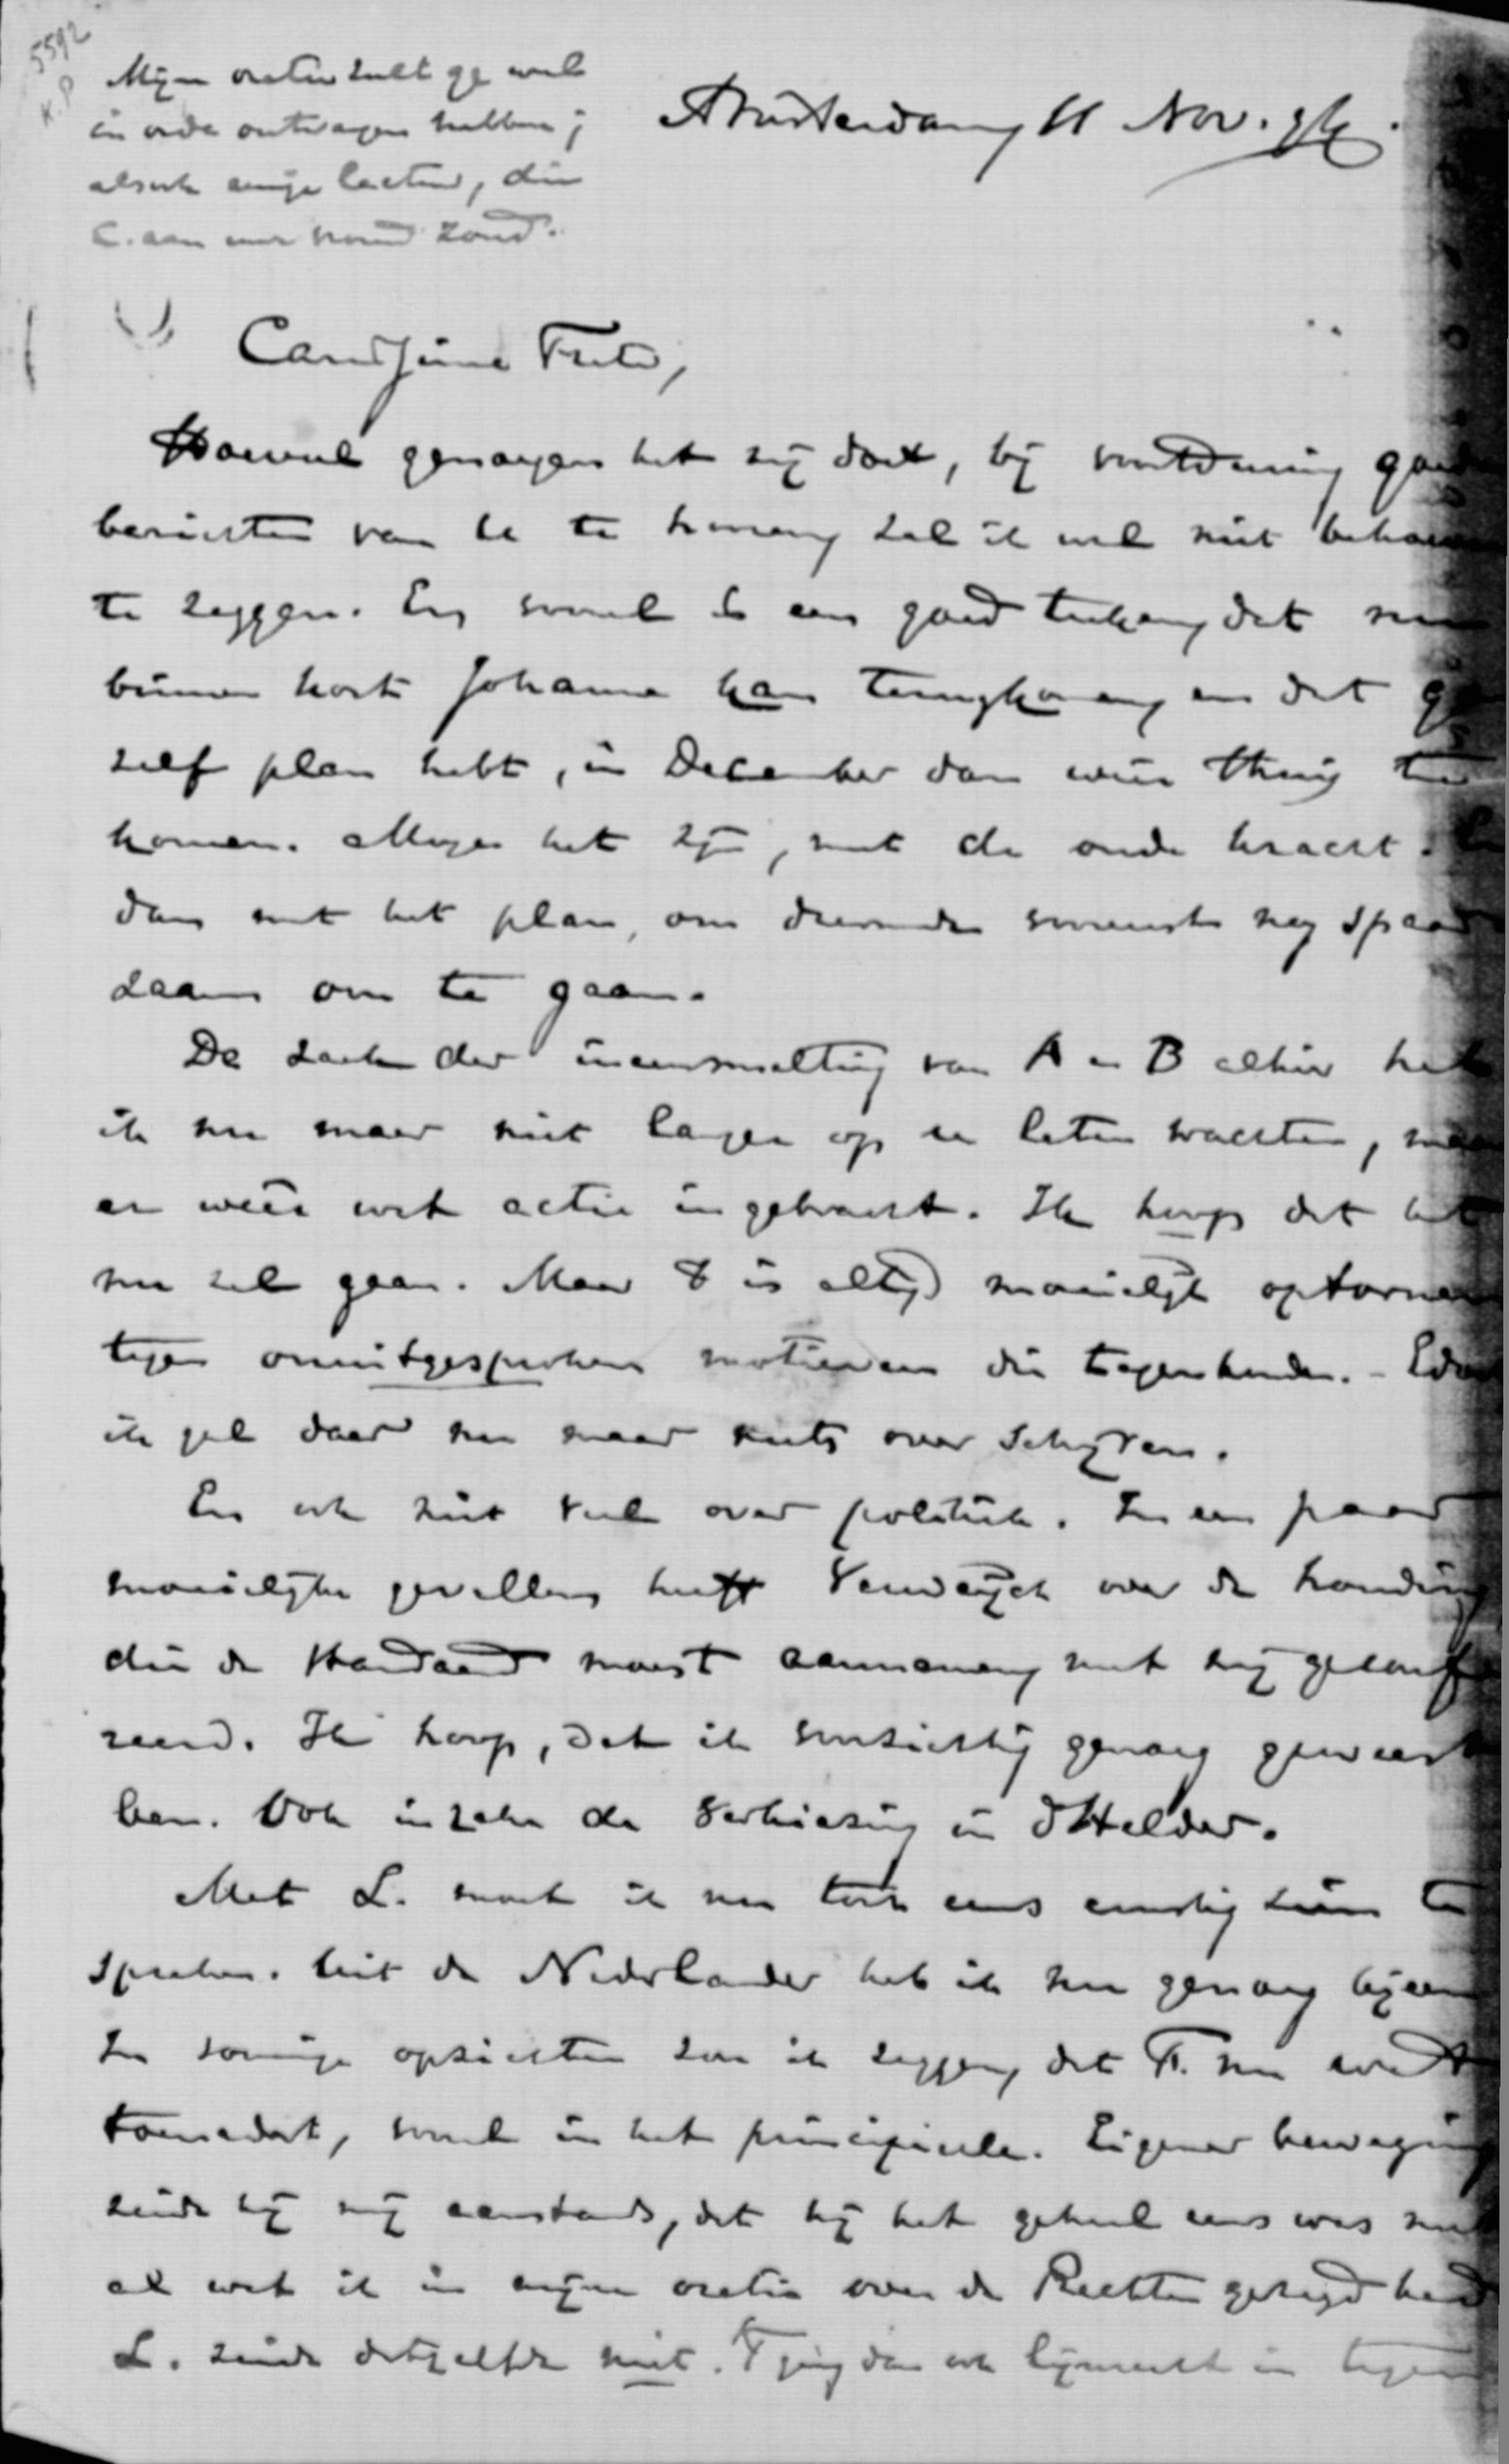 5592
K.P
Mijn oratie zult ge wel
in orde ontvangen hebben;
alsook eenige lectuur, die
C. aan mij zond.
Amsterdam 11 Nov. 96.
Amplissime Frater,
Hoeveel genoegen het mij doet, bij voortduring goede
berichten van U te vernemen zal ik wel niet behoeven
te zeggen. En vooral is een goed teeken, dat nu
binnen kort Johanna kan terugkomen en dat ge
zelf plan hebt, in December dan weer thuis te
komen. Moge het zijn, met de oude kracht. En
dan met het plan, om daarmede vooreerst nog spaar
zaam om te gaan.
De zaak der ineensmelting van A en B alhier heb
ik nu maar niet langer op U laten wachten, maar
er weer wat actie in gebracht. Ik hoop dat het
nu zal gaan. Maar 't is altijd moeielijk optornen
tegen onuitgesproken motieven die tegenhouden. -
ik zal daar nu maar niets over schrijven.
En ook niet veel over politiek. In een paar
moeielijke gevallen heeft over de houding
die de Standaard moest aannemen met mij geconfe
reerd. Ik hoop, dat ik voorzichtig genoeg geweest
ben. Ook inzake de verkiezing in d Helder.
Met L. moet ik nu toch eens ernstig zien te
spreken. Uit de Nederlander heb ik nu genoeg bijeen
In sommige opzichten zou ik zeggen, dat Th. nu wat
toenadert, vooral in het principieele. Eigener beweging
zeide hij mij aanstonds, dat hij het geheel eens was met
al wat ik in mijne oratie over de Rechten gezegd had
L. zeide datzelfde niet. T ging dan ook lijnrecht in tegen